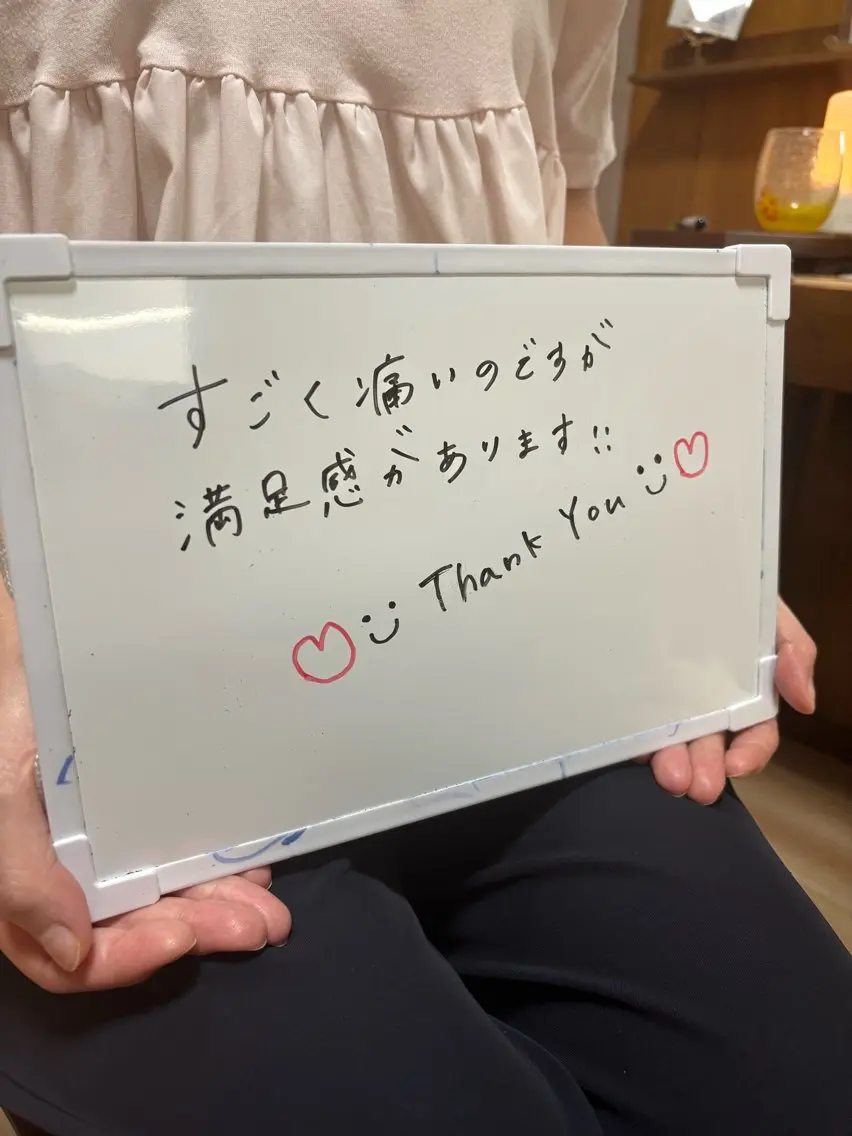 すごく痛いのですが
満足感があります!!
Thank You